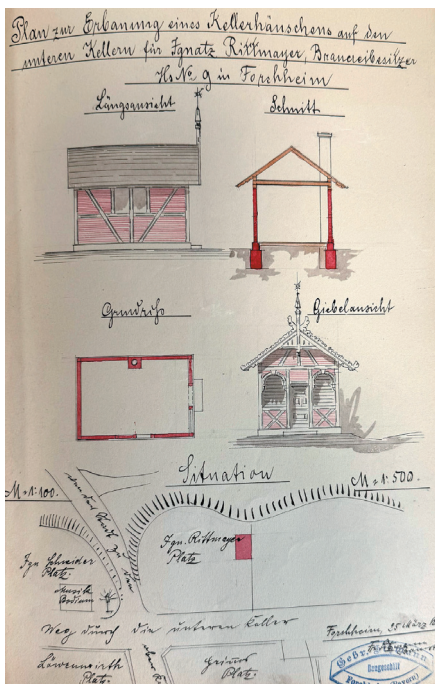 Plan zur Erbauung eines Kellerhäuschens auf den
unteren Kellern für Ignatz Rittmayer, Brauereibesitzer
Hs. No. 9 in Forchheim
Längsansicht
Schnitt
Grundriss
Giebelansicht
Situation
M = 1:100.
M = 1:500.
von der Stadt zu den
Ign. Schneider
Platz.
Musik
Podium
Ign. Rittmayer
Platz
Weg durch die unteren Keller
Löwenwirth
Platz.
Platz.
Forchheim, 25. März
Gebr.
Baugeschäft